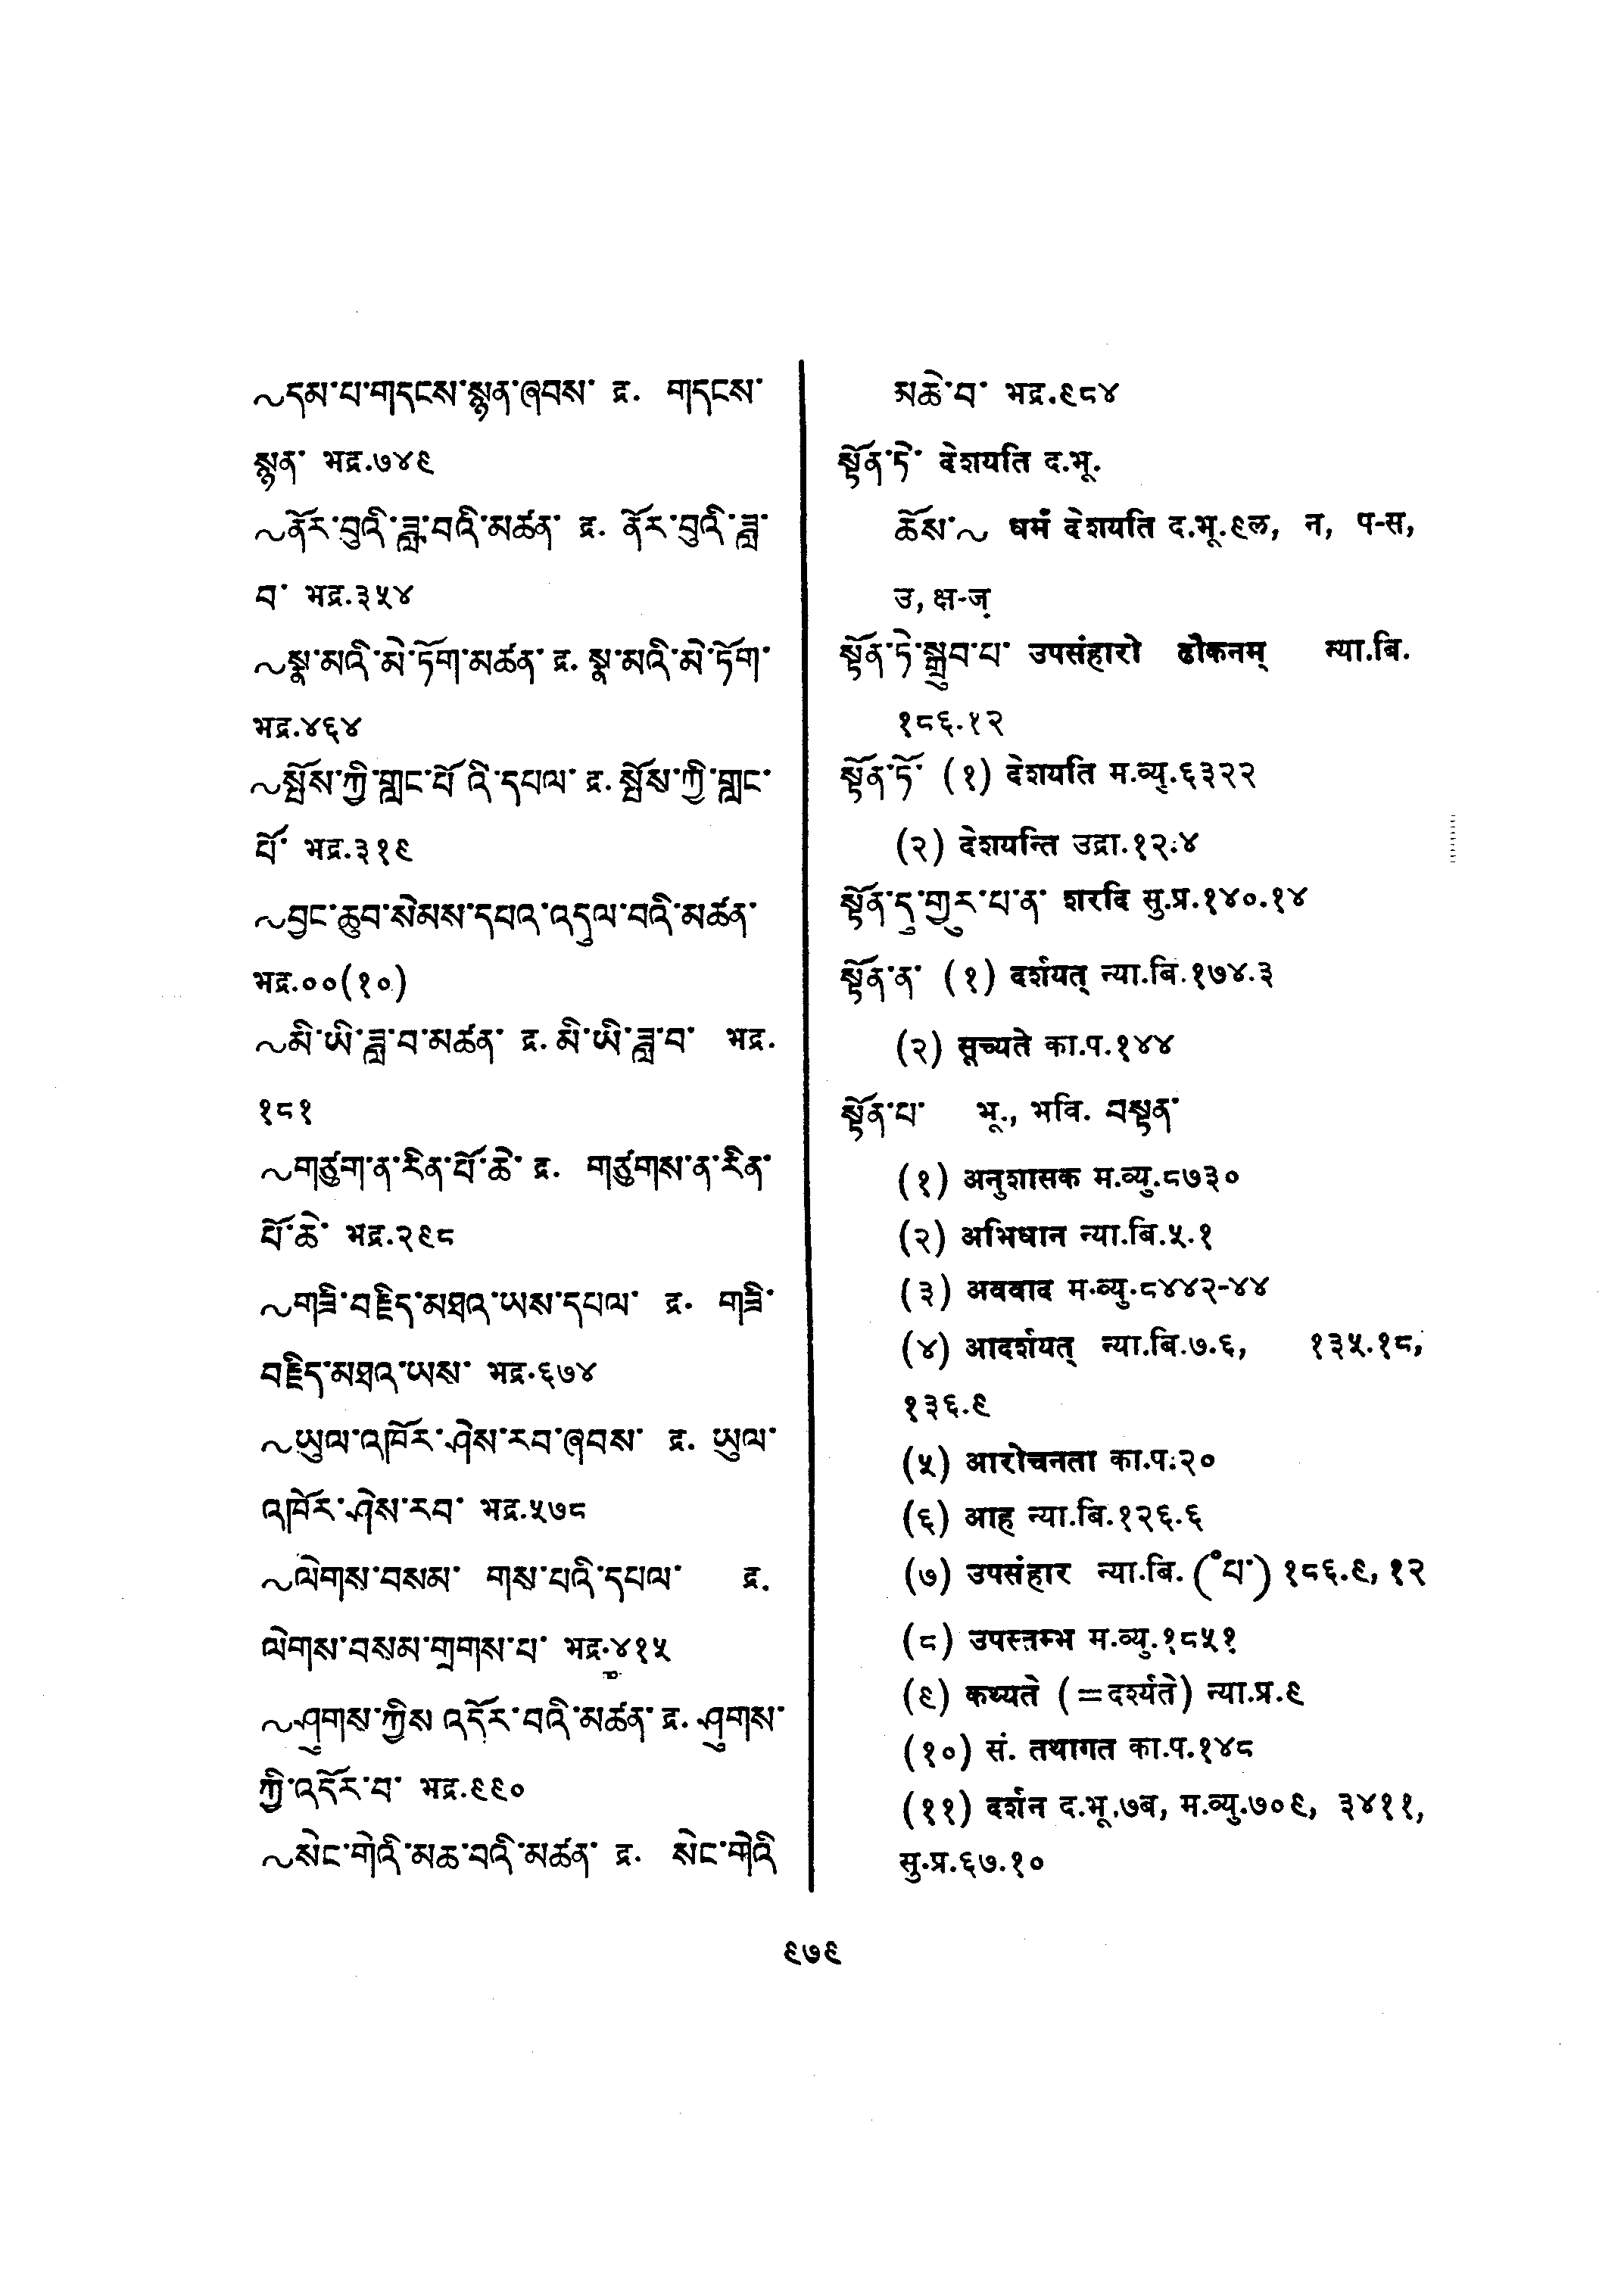 ~དམ་པ་གདངས་སྙན་ཞབས་ द्र. གདངས་
སྙན་ भद्र.७४९
~ནོར་བུའི་ཟླ་བའི་མཚན་ द्र. ནོར་བུའི་ཟླ་
བ་ भद्र.३५४
~སྣ་མའི་མེ་ཏོག་མཚན་ द्र. སྣ་མའི་མེ་ཏོག་
भद्र.४६४
~སྤོས་ཀྱི་གླང་པོ་འི་དཔལ་ द्र. སྤོས་ཀྱི་གླང་
པོ་ भद्र.३१९
~བྱང་ཆུབ་སེམས་དཔའ་འདུལ་བའི་མཚན་
भद्र.००(१०)
~མི་ཡི་ཟླ་བ་མཚན་ द्र. མི་ཡི་ཟླ་བ་ भद्र.
१८१
~གཙུག་ན་རིན་པོ་ཆེ་ द्र. གཙུགས་ན་རིན་
པོ་ཆེ་ भद्र.२९८
~གཟི་བརྗིད་མཐའ་ཡས་དཔལ་ द्र. གཟི་
བརྗིད་མཐའ་ཡས་ भद्र.६७४
~ཡུལ་འཁོར་ཤེས་རབ་ཞབས་ द्र. ཡུལ་
འཁོར་ཤེས་རབ་ भद्र.५७८
~ལེགས་བསམ་ གས་པའི་དཔལ་ द्र.
ལེགས་བསམ་གྲགས་པ་ भद्र.४१५
~ཤུགས་ཀྱིས་འདོར་བའི་མཚན་ द्र. ཤུགས་
ཀྱི་འདོར་བ་ भद्र.९९०
~སེང་གེའི་མཆ་བའི་མཚན་ द्र. སེང་གེའི
མཆེ་བ་ भद्र.९८४
སྟོན་ཏེ་ देशयति द.भू.
ཆོས་~ धर्मं देशयति द.भू.९ल, न, प-स,
उ, क्ष-ज्
སྟོན་ཏེ་སྒྲུབ་པ་ उपसंहारो ढौकनम् न्या.बि.
१८६.१२
སྟོན་ཏོ་ (१) देशयति म.व्यु.६३२२
(२) देशयन्ति उद्रा.१२:४
སྟོན་དུ་གྱུར་པ་ན་ शरदि सु.प्र.१४०.१४
སྟོན་ན་ (१) दर्शयत् न्या.बि.१७४.३
(२) सूच्यते का.प.१४४
སྟོན་པ་ भू., भवि. བསྟན་
(१) अनुशासक म.व्यु.८७३०
(२) अभिधान न्या.बि.५.१
(३) अववाद म.व्यु.८४४२-४४
(४) आदर्शयत् न्या.बि.७.६, १३५.१८,
१३६.९
(५) आरोचनता का.प:२०
(६) आह न्या.बि.१२६.६
(७) उपसंहार न्या.बि.(°པ་) १८६.९, १२
(८) उपस्तम्भ म.व्यु.१८५१
(९) कथ्यते (=दर्श्यते) न्या.प्र.९
(१०) सं. तथागत का.प.१४८
(११) दर्शन द.भू.७ब, म.व्यु.७०९, ३४११,
सु.प्र.६७.१०
९७९